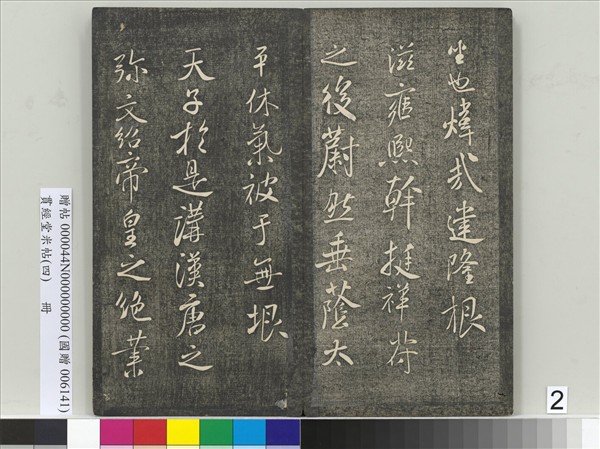 坐也煒哉建隆根
滋雍熙幹挺祥符
之後蔚然垂蔭太
平休氣被于無垠
天子於是講漢唐之
弥文紹帝皇之絕業
贈帖 000044N000000000 (國贈 006141)
貫經堂米帖(四) 冊
2